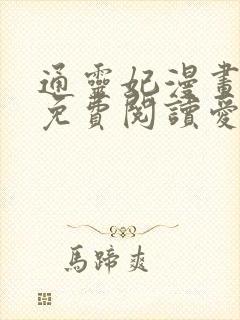 通靈妃漫畫
免費閱讀愛
馬蹄爽